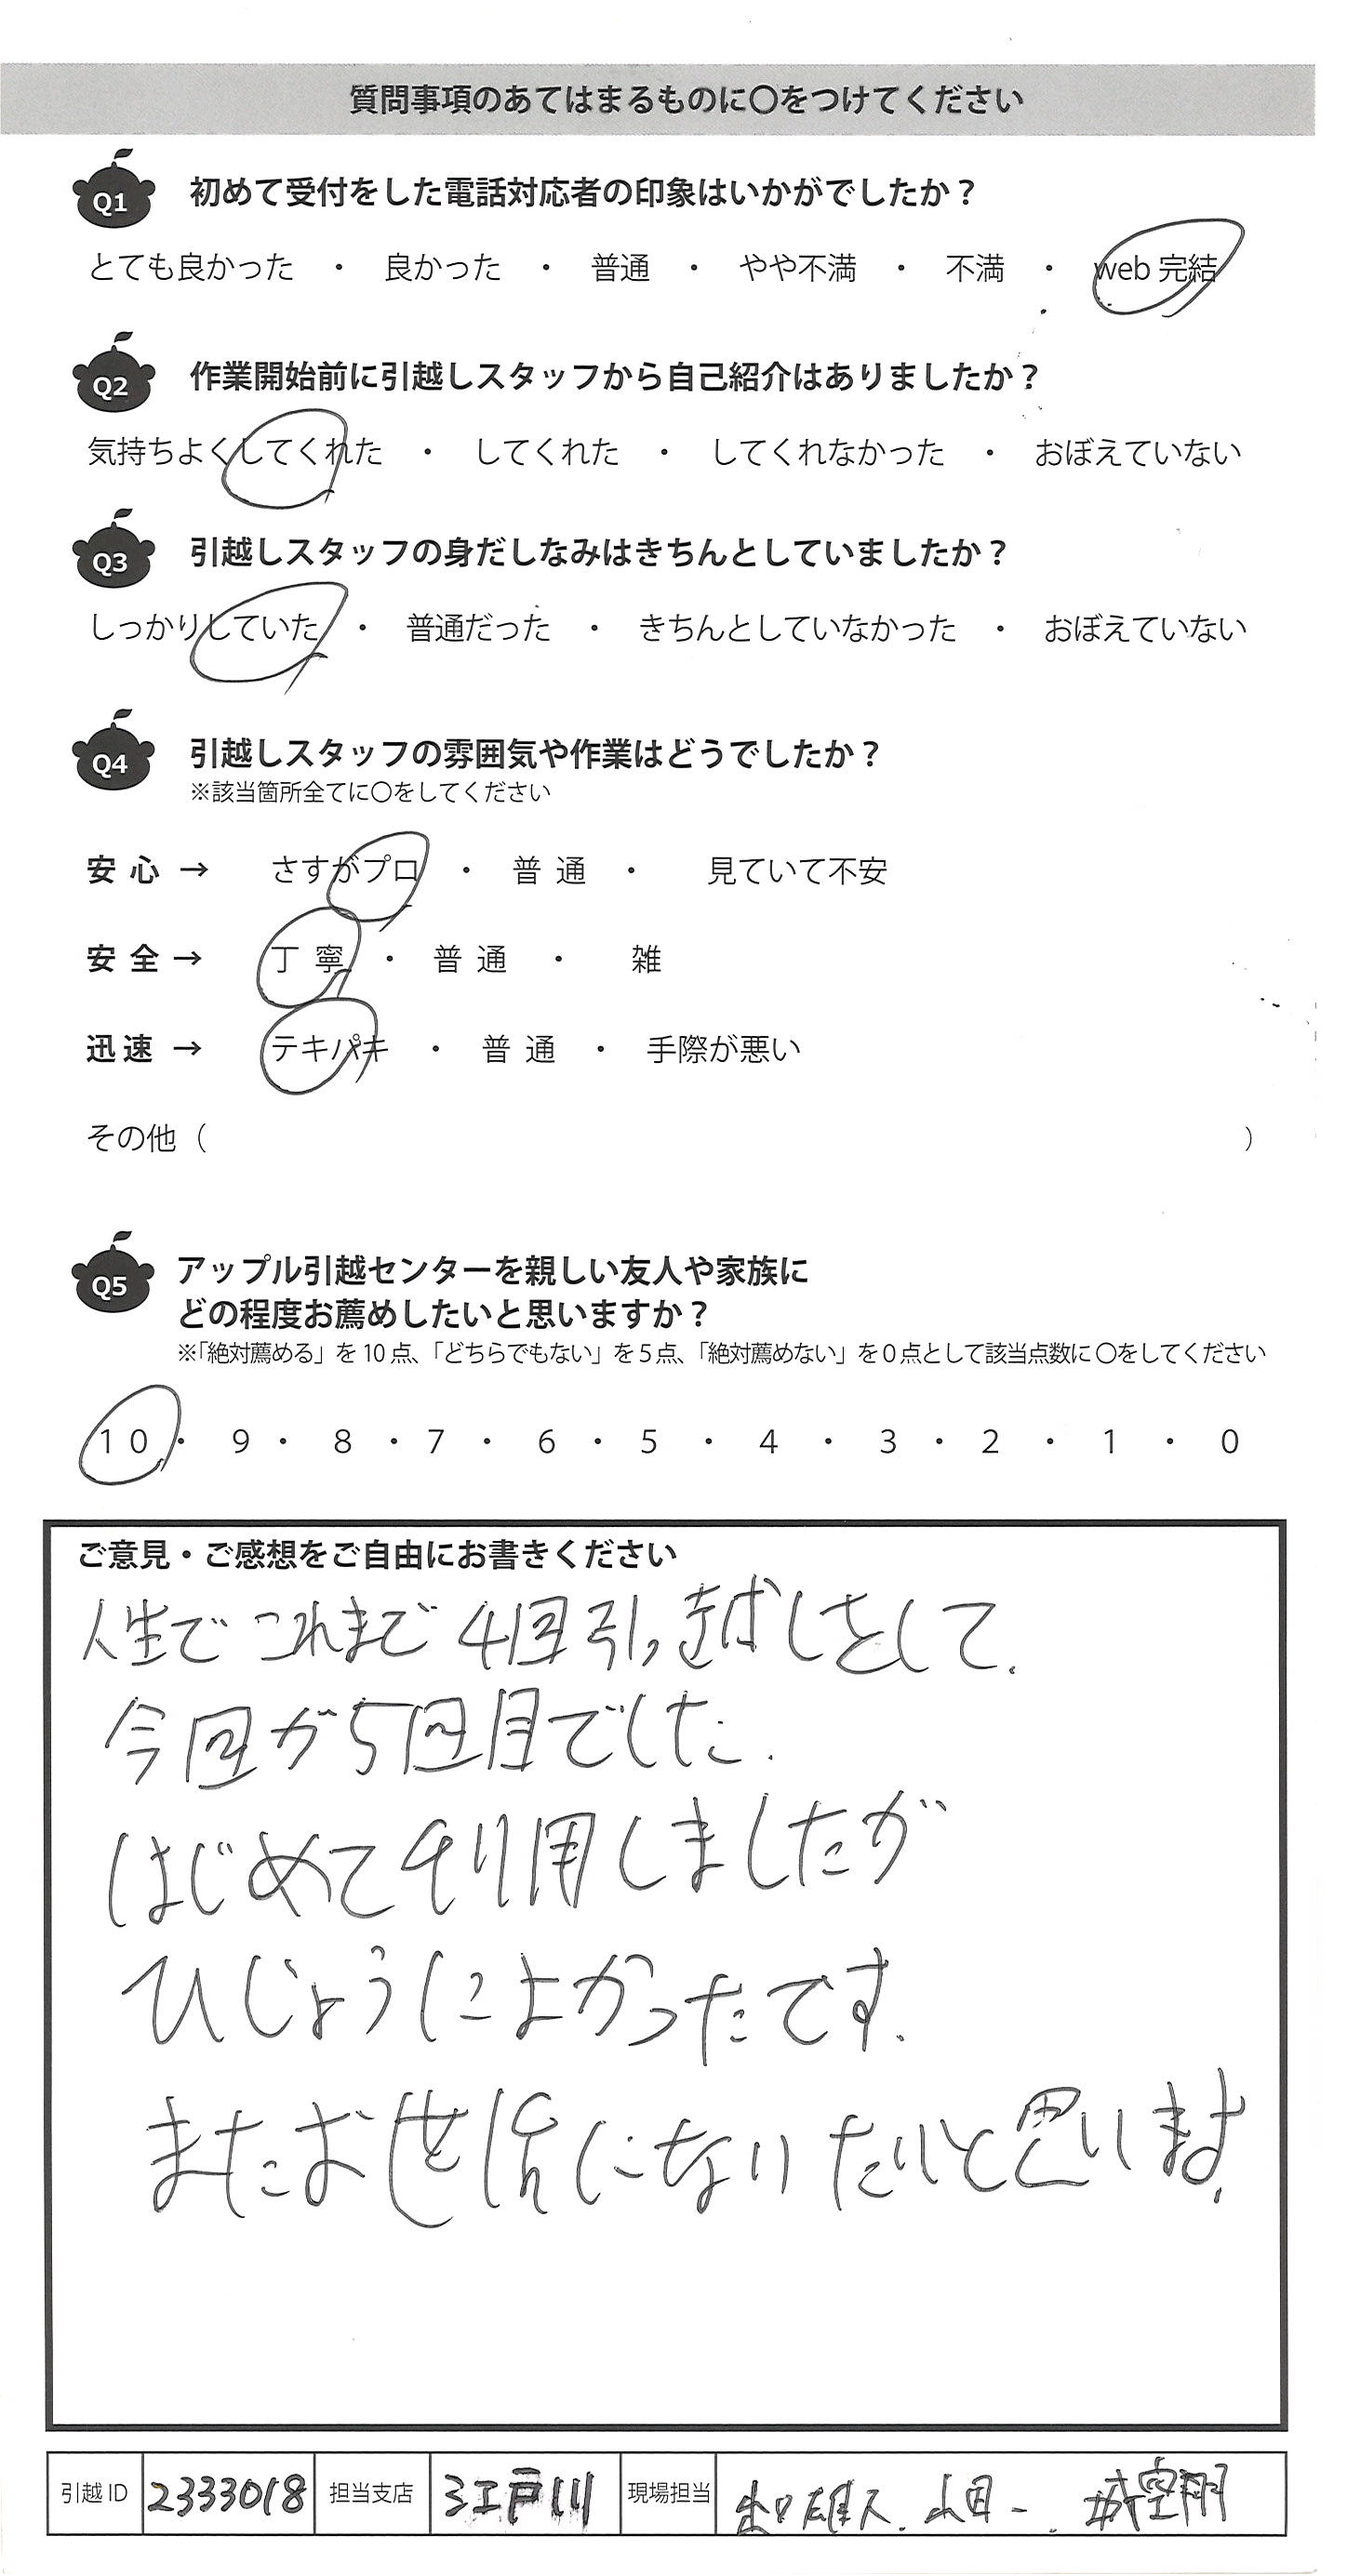 質問事項のあてはまるものに〇をつけてください
Q1 初めて受付をした電話対応者の印象はいかがでしたか？
とても良かった ・ 良かった ・ 普通 ・ やや不満 ・ 不満 ・ web 完結
Q2 作業開始前に引越しスタッフから自己紹介はありましたか？
気持ちよくしてくれた ・ してくれた ・ してくれなかった ・ おぼえていない
Q3 引越しスタッフの身だしなみはきちんとしていましたか？
しっかりしていた ・ 普通だった ・ きちんとしていなかった ・ おぼえていない
Q4 引越しスタッフの雰囲気や作業はどうでしたか？
※該当箇所全てに〇をしてください
安心 → さすがプロ ・ 普通 ・ 見ていて不安
安全 → 丁寧 ・ 普通 ・ 雑
迅速 → テキパキ ・ 普通 ・ 手際が悪い
その他（ ）
Q5 アップル引越センターを親しい友人や家族に
どの程度お薦めしたいと思いますか？
※「絶対薦める」を 10 点、「どちらでもない」を 5 点、「絶対薦めない」を 0 点として該当点数に 〇をしてください
10 ・ 9 ・ 8 ・ 7 ・ 6 ・ 5 ・ 4 ・ 3 ・ 2 ・ 1 ・ 0
ご意見・ご感想をご自由にお書きください
人生でこれまで4回引っ越しをして、
今回が5回目でした.
はじめて利用しましたが
ひじょうによかったです.
またお世話になりたいと思います.
引越 ID 2333018 担当支店 江戸川 現場担当